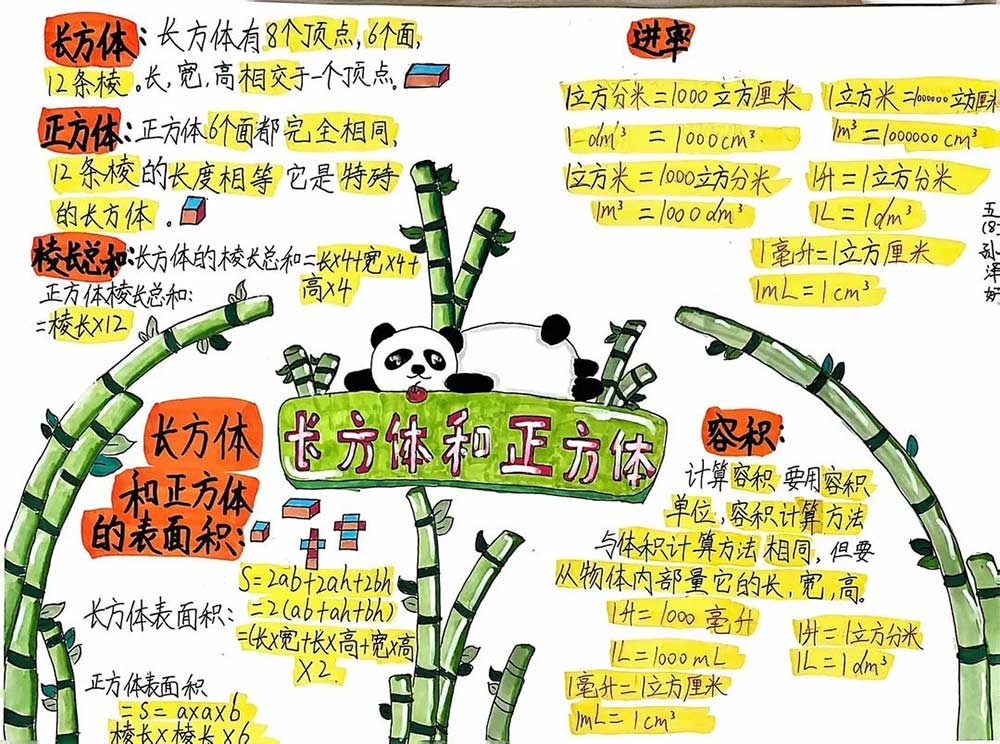 长方体：长方体有8个顶点，6个面，
12条棱。长，宽，高相交于一个顶点。
正方体：正方体6个面都完全相同，
12条棱的长度相等它是特殊
的长方体。
棱长总和：长方体的棱长总和=长×4+宽×4+
高×4
正方体棱长总和：
=棱长×12
进率
1立方分米=1000立方厘米
1立方米=1000000立方厘米
1dm³=1000cm³
1m³=1000000cm³
1立方米=1000立方分米
1升=1立方分米
1m³=1000dm³
1L=1dm³
1毫升=1立方厘米
1mL=1cm³
孙
泽
长方体和正方体
长方体
和正方体
的表面积：
S=2ab+2ah+2bh
长方体表面积：=2(ab+ah+bh)
=(长×宽+长×高+宽×高
×2
正方体表面积
=S=a×a×6
棱长×棱长×6
容积：
计算容积要用容积
单位，容积计算方法
与体积计算方法相同，但要
从物体内部量它的长，宽，高。
1升=1000毫升
1升=1立方分米
1L=1000mL
1L=1dm³
1毫升=1立方厘米
1mL=1cm³